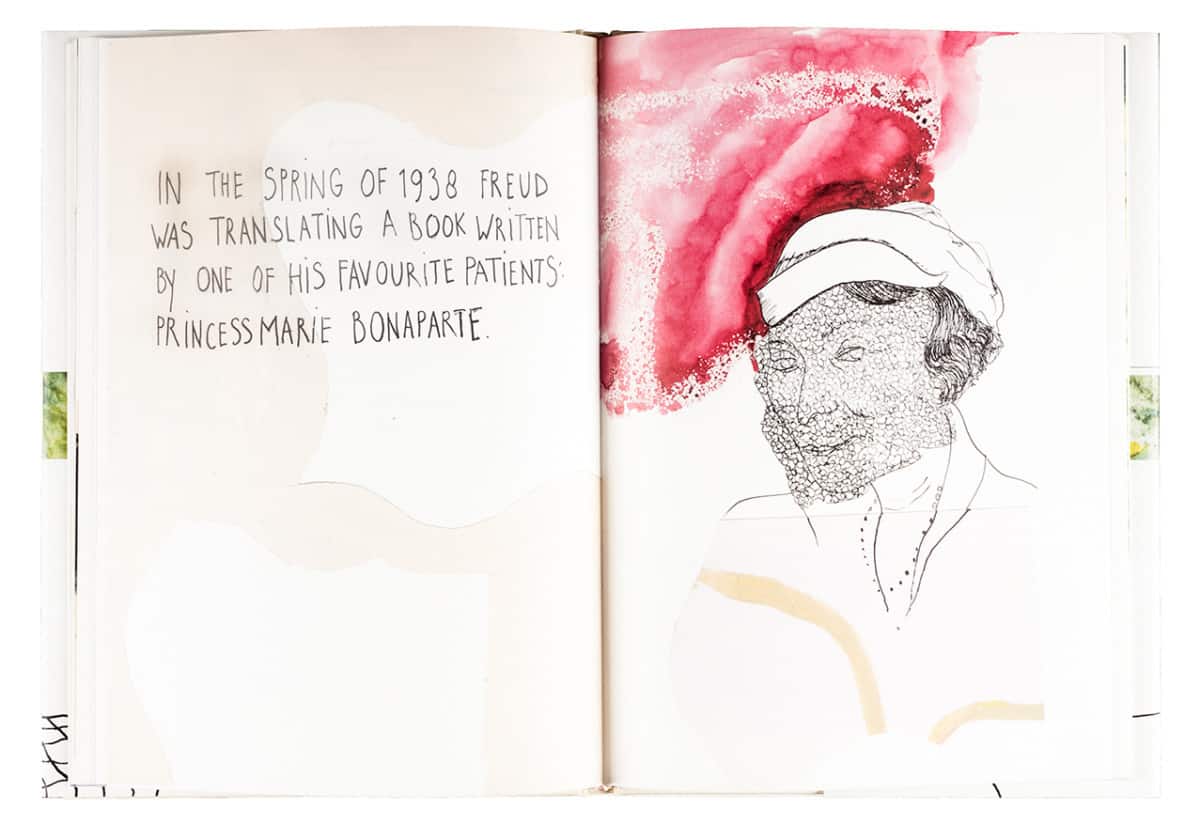 IN THE SPRING OF 1938 FREUD
WAS TRANSLATING A BOOK WRITTEN
BY ONE OF HIS FAVOURITE PATIENTS:
PRINCESS MARIE BONAPARTE.